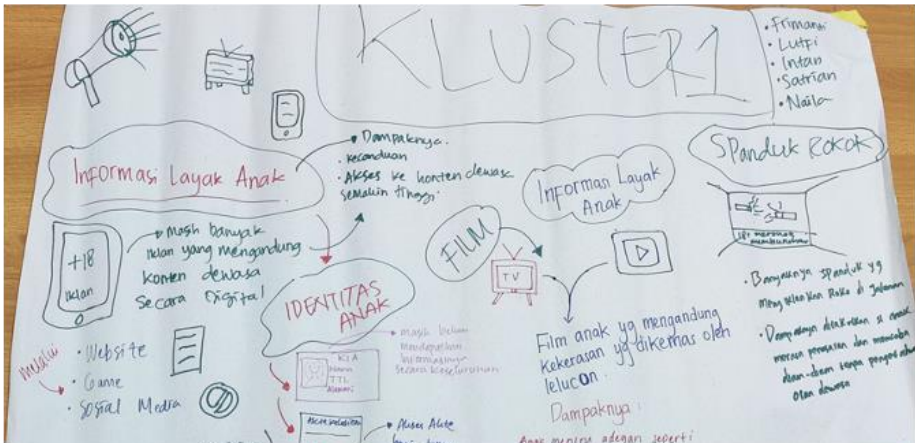 KLUSTER 1
• Frimansi
• Lutfi
• Intan
• Satrian
• Naila
Informasi Layak Anak
• Dampaknya.
• kecanduan
• Akses ke konten dewasa
semakin tinggi
+18
iklan
• masih banyak
iklan yang mengandung
konten dewasa
secara Digital
melalui
• Website
• Game
• Sosial Media
IDENTITAS
ANAK
• masih belum
mendapatkan
secara keseluruhan
KIA
Nama
TTL
• Akses Akte
FILM
TV
Informasi Layak
Anak
Film anak yg mengandung
kekerasan yg dikemas oleh
lelucon.
Dampaknya:
Anak meniru adegan seperti
SPanduk ROKOK
18+ merokok
membunuhmu
• Banyaknya spanduk yg
mengiklankan Roko di jalanan
• Dampaknya ditakutkan si anak
merasa penasaran dan mencoba
diam-diam tanpa
orang dewasa